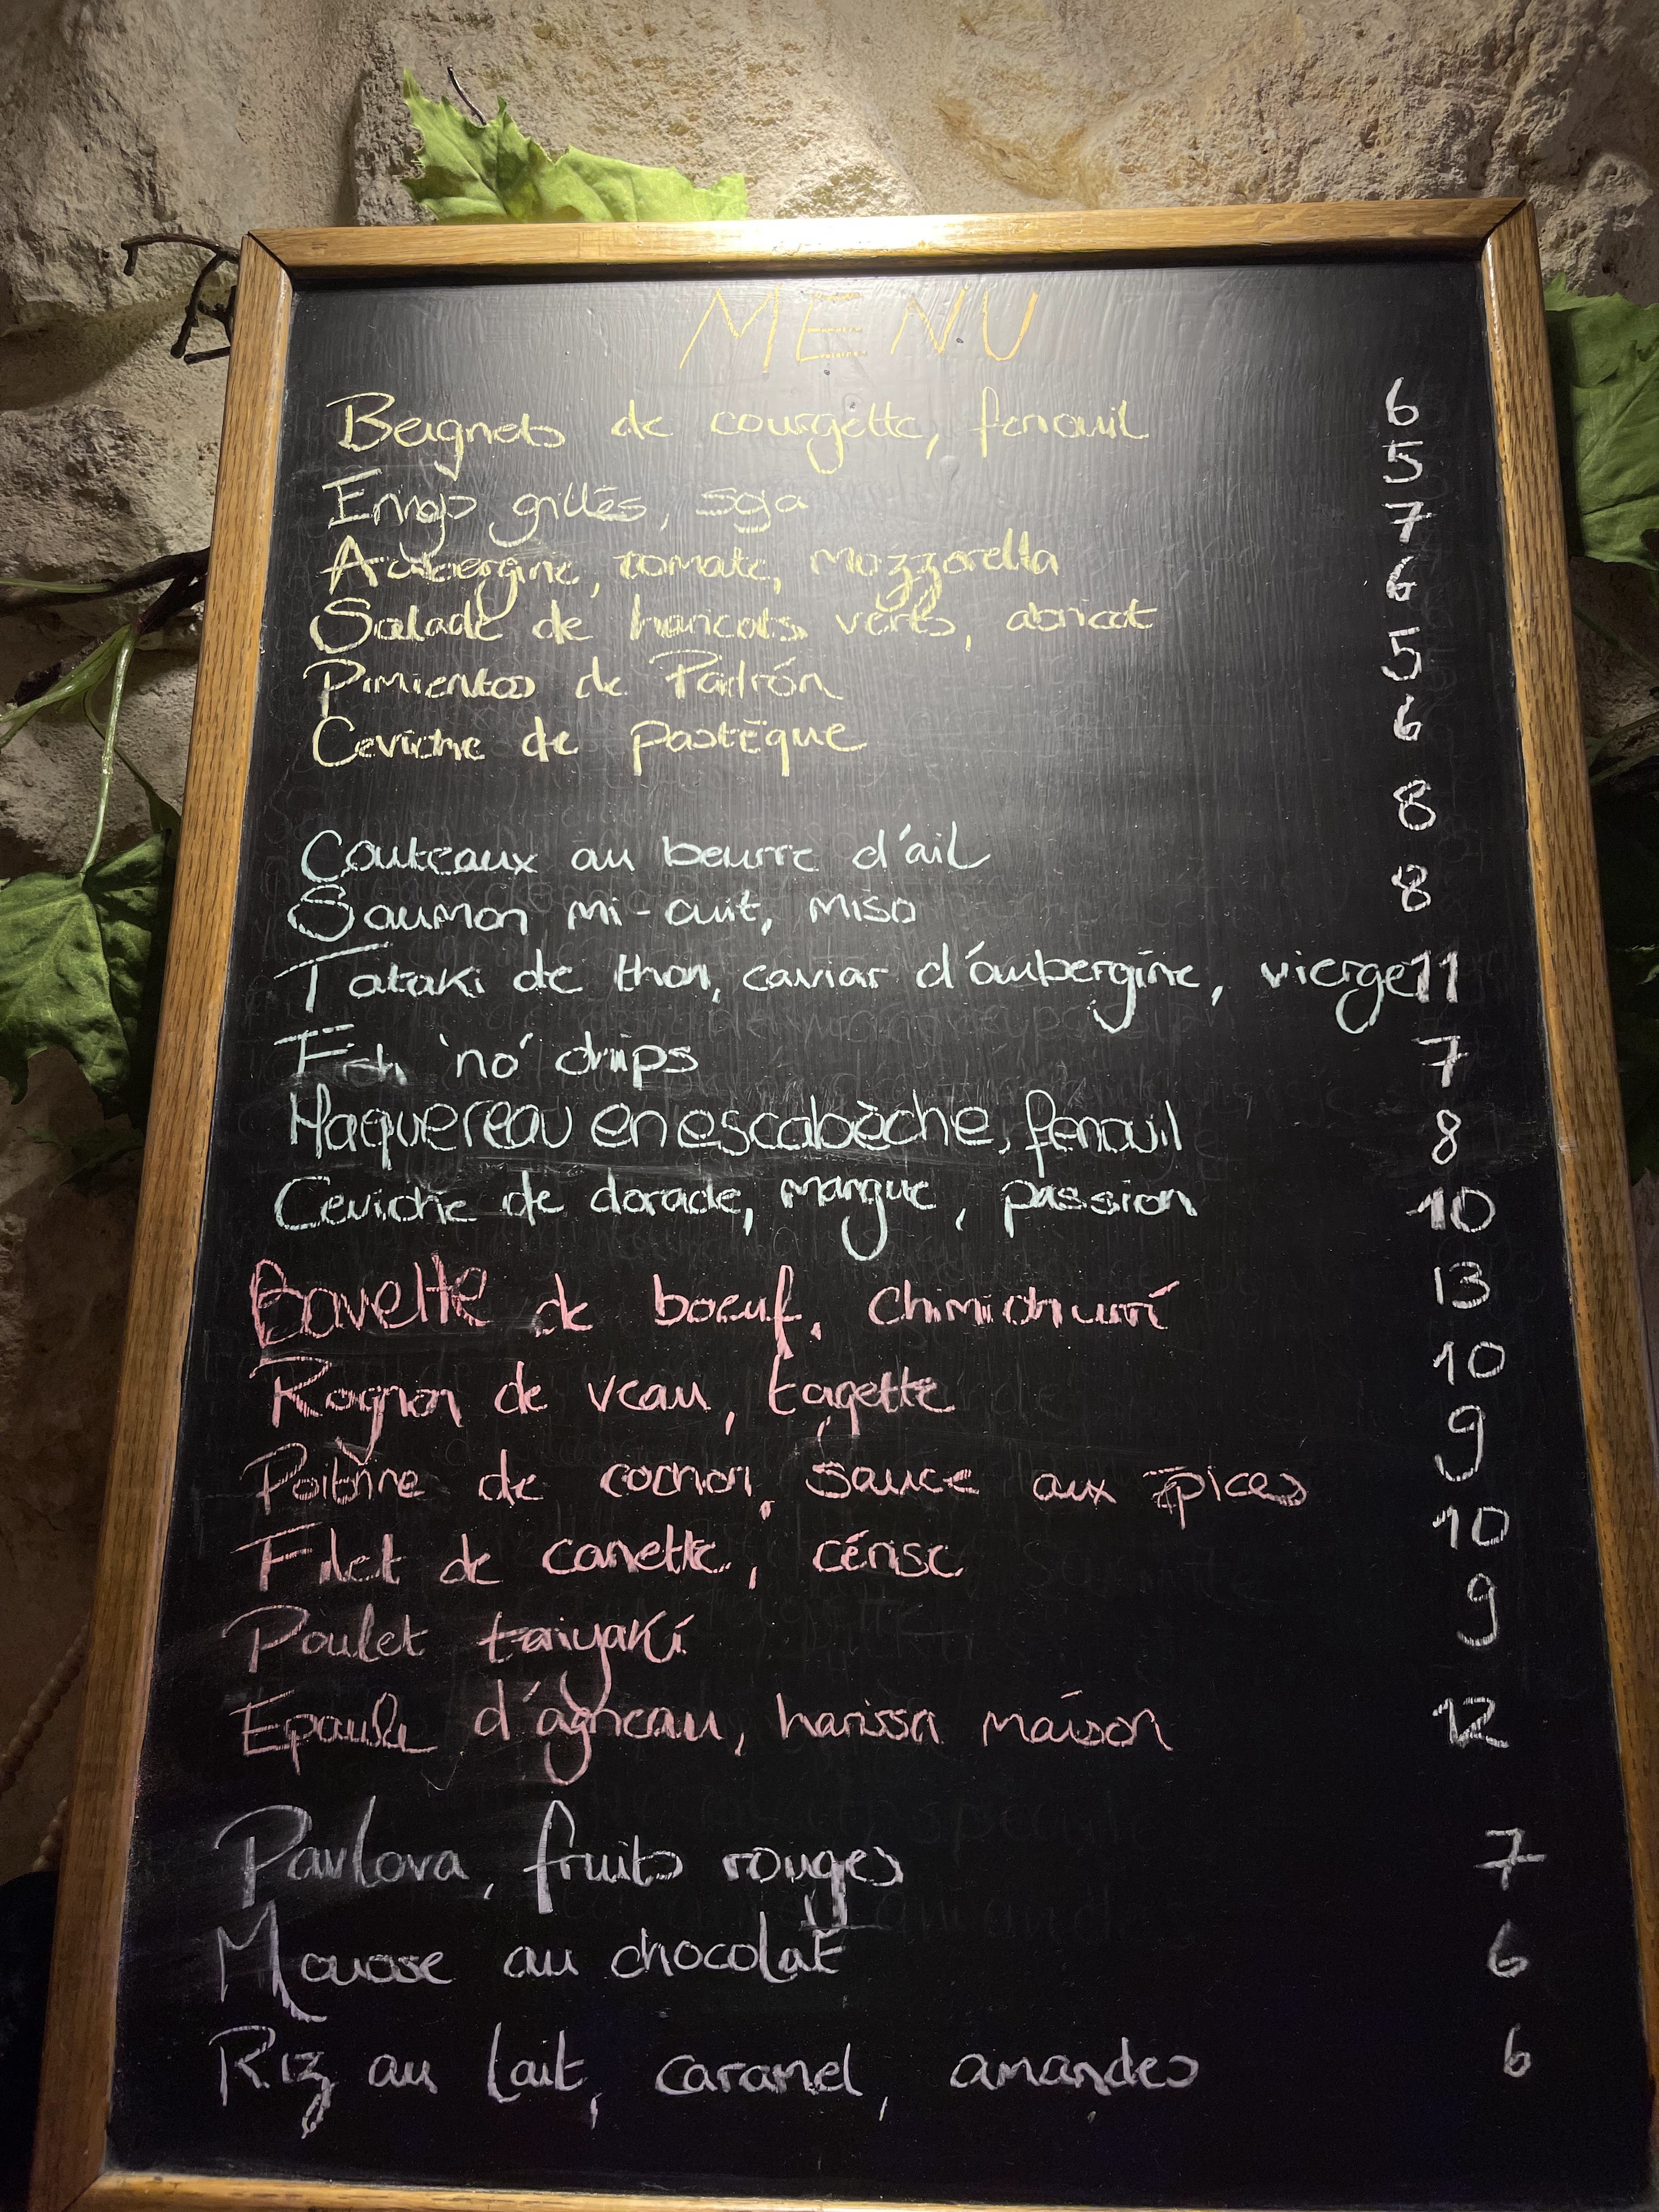 MENU
Beignets de courgette, fenouil 6
grillés, soja 5
Aubergine, tomate, mozzarella 7
Salade de haricots verts, abricot 6
Pimientos de Padrón 5
Ceviche de pastèque 6
Couteaux au beurre d'ail 8
Saumon mi-cuit, miso 8
Tataki de thon, caviar d'aubergine, vierge 11
Fish 'no' chips 7
Maquereau en escabèche, fenouil 8
Ceviche de dorade, mangue, passion 10
Bavette de boeuf, chimichurri 13
Rognon de veau, tagette 10
Poitrine de cochon, sauce aux épices 9
Filet de canette, cérise 10
Poulet taiyaki 9
Epaule d'agneau, harissa maison 12
Pavlova, fruits rouges 7
Mousse au chocolat 6
Riz au lait, caramel, amandes 6